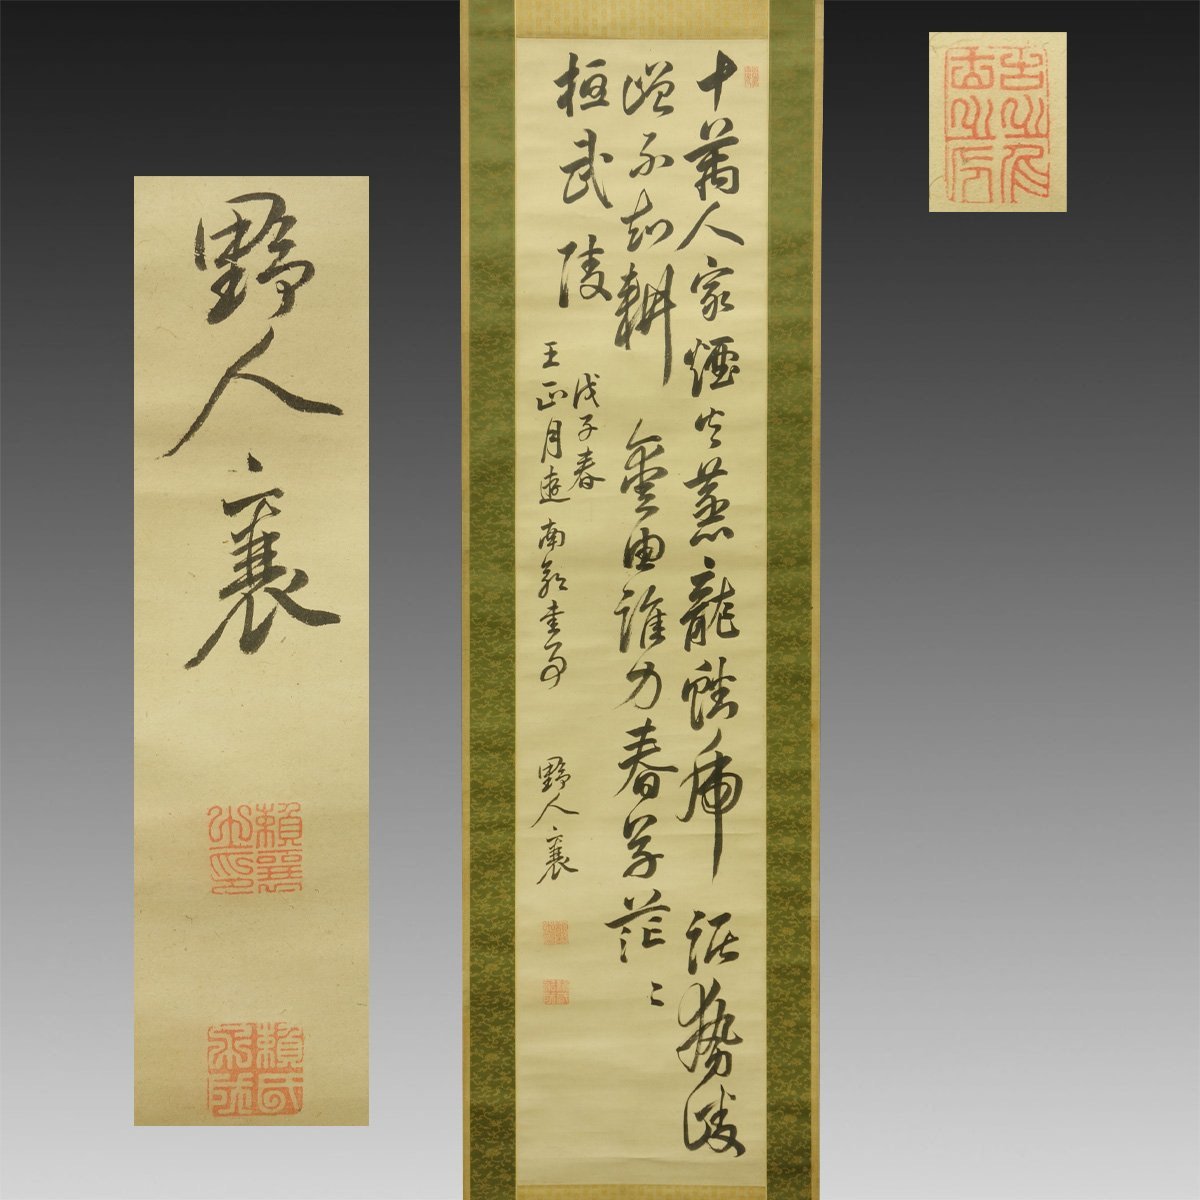 十萬人家煙火蒸龍蟠虎踞勢崚
嶒不知耕鑿由誰力春草茫〻
桓武陵
戊子春
王正月遊南郊書事 野人襄
野人襄
賴襄之印